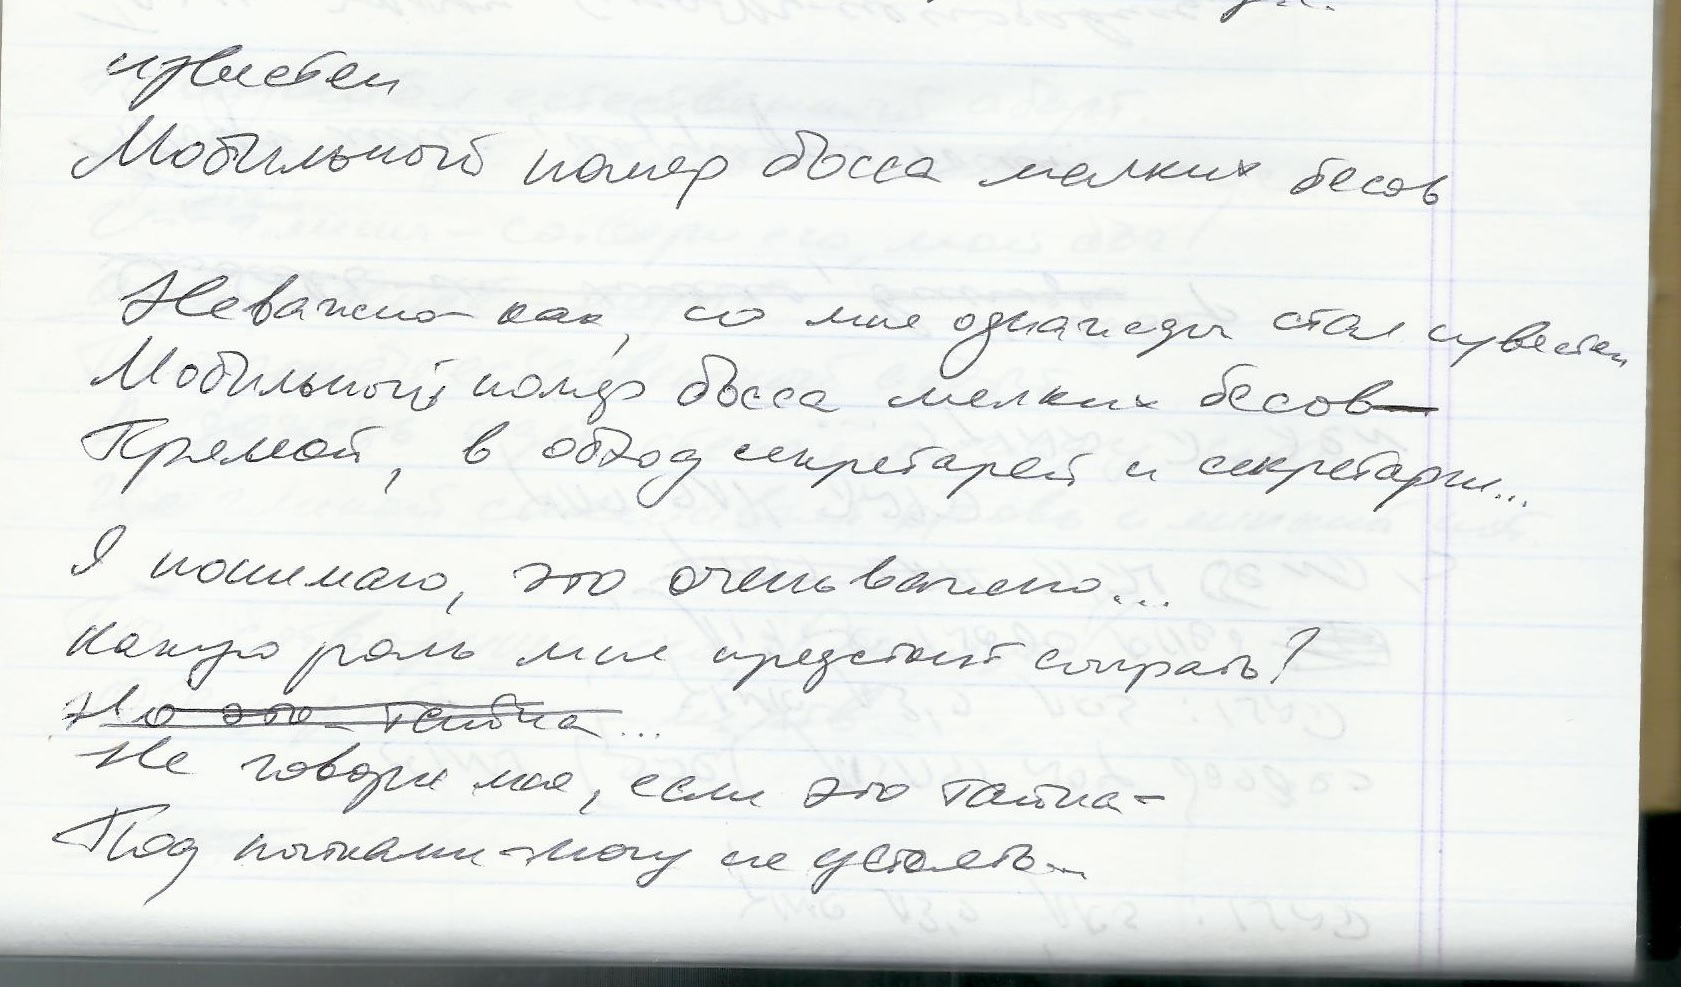 известен
Мобильный номер босса мелких бесов
Неважно как, но мне однажды стал известен
Мобильный номер босса мелких бесов—
Прямой, в обход секретарей и секретарш...
Я понимаю, это очень важно...
Какую роль мне предстоит сыграть?
Но это тайна...
Не говори мне, если это тайна-
Под пытками-могу не устоять...